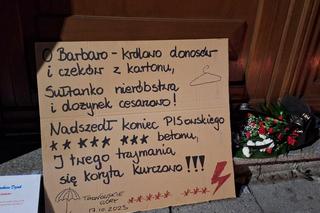 O Barbaro - królowo donosów
i czeków z kartonu,
Sułtanko nieróbstwa
i dożynek cesarzowo!
Nadszedł koniec PISowskiego
***** *** betonu,
I twego trzymania
się koryta kurczowo!!!
17.10.2023